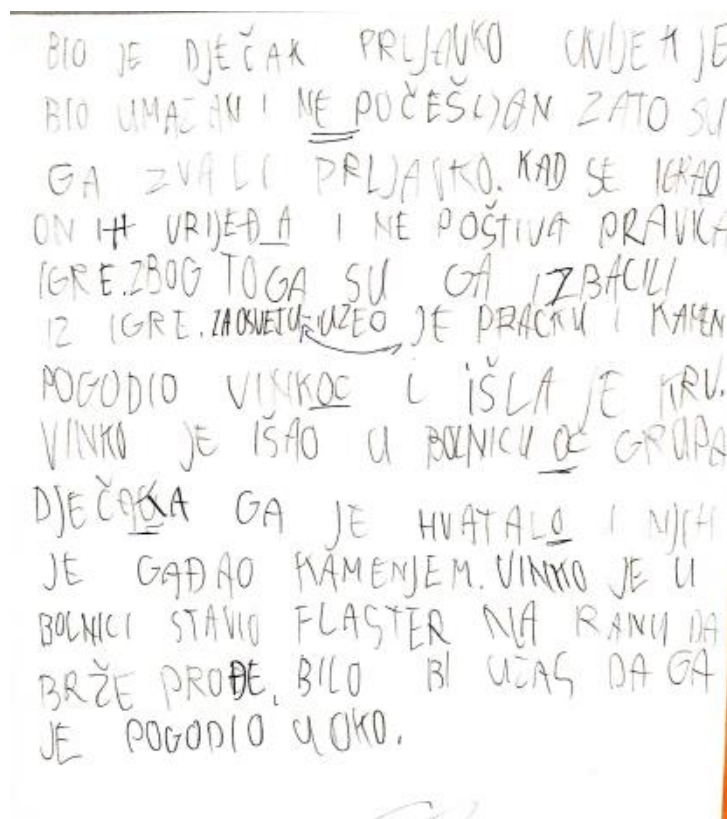 BIO JE DJEČAK PRLJAVKO UVIJEK JE
BIO UMAZAN I NE POČEŠLJAN ZATO SU
GA ZVALI PRLJAVKO. KAD SE IGRAO
ON IH VRIJEĐA I NE POŠTIVA PRAVILA
IGRE. ZBOG TOGA SU GA IZBACILI
IZ IGRE. ZA OSVETU UZEO JE PRAĆKU I KAMEN
POGODIO VINKOC I IŠLA JE KRV.
VINKO JE IŠAO U BOLNICU OC GRUPA
DJEČAKA GA JE HVATALO I NJIH
JE GAĐAO KAMENJEM. VINKO JE U
BOLNICI STAVIO FLASTER NA RANU DA
BRŽE PROĐE. BILO BI UŽAS DA GA
JE POGODIO U OKO.